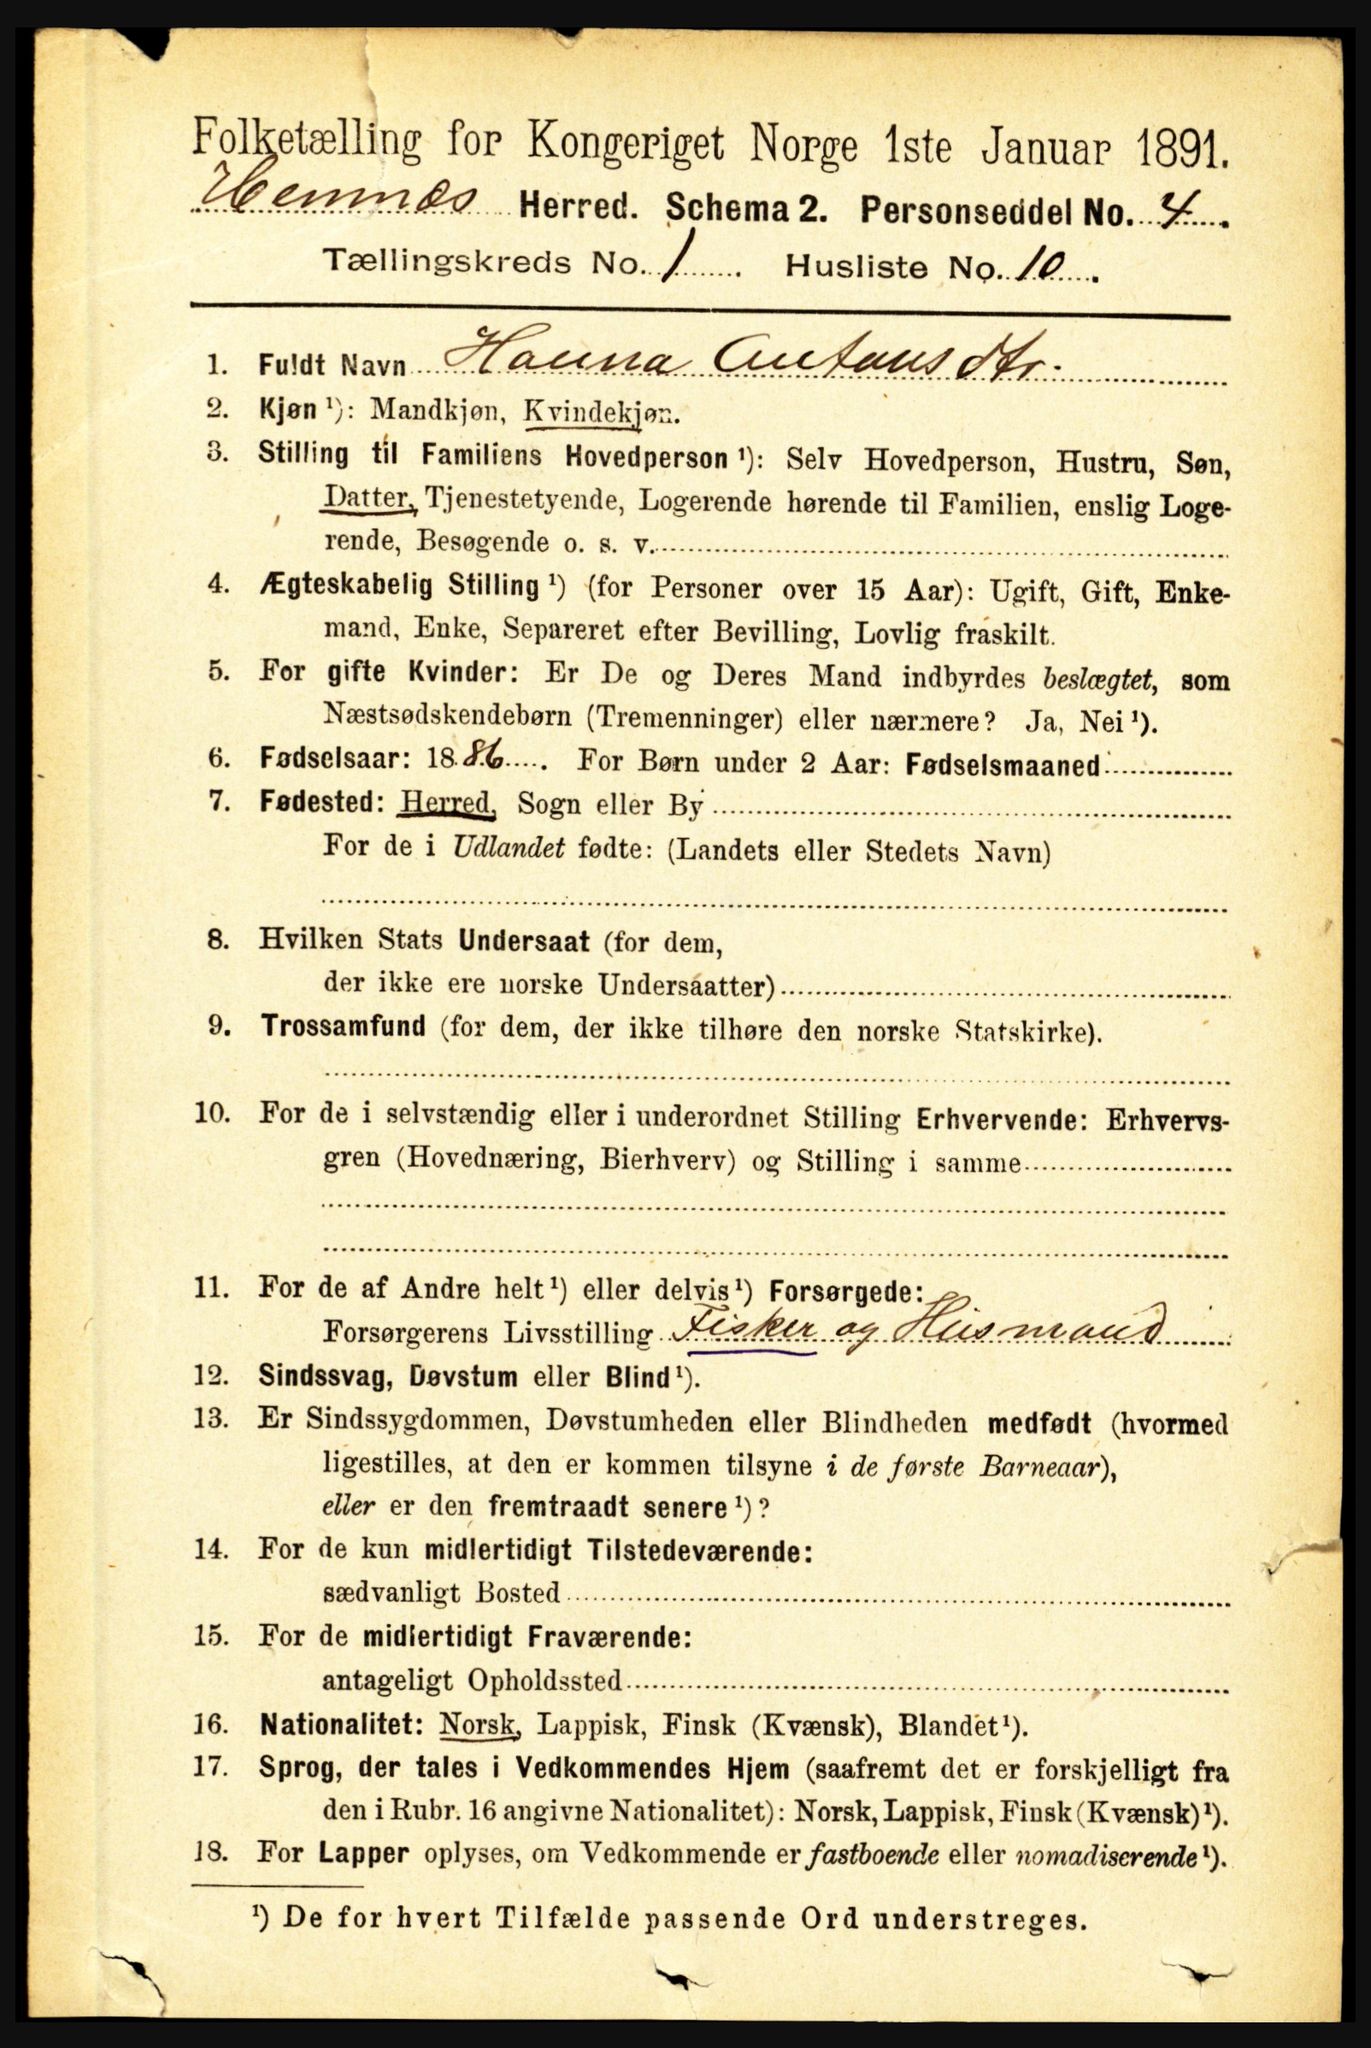 Folketælling for Kongeriget Norge 1ste Januar 1891.
Hemnæs Herred. Schema 2. Personseddel No. 4.
Tællingskreds No. 1. Husliste No. 10.
1. Fuldt Navn Hanna Antonsdtr.
2. Kjøn ¹): Mandkjøn, Kvindekjøn.
3. Stilling til Familiens Hovedperson ¹): Selv Hovedperson, Hustru, Søn,
Datter, Tjenestetyende, Logerende hørende til Familien, enslig Loge-
rende, Besøgende o. s. v.
4. Ægteskabelig Stilling ¹) (for Personer over 15 Aar): Ugift, Gift, Enke-
mand, Enke, Separeret efter Bevilling, Lovlig fraskilt.
5. For gifte Kvinder: Er De og Deres Mand indbyrdes beslægtet, som
Næstsødskendebørn (Tremenninger) eller nærmere? Ja, Nei ¹).
6. Fødselsaar: 1886. For Børn under 2 Aar: Fødselsmaaned
7. Fødested: Herred, Sogn eller By
For de i Udlandet fødte: (Landets eller Stedets Navn)
8. Hvilken Stats Undersaat (for dem,
der ikke ere norske Undersaatter)
9. Trossamfund (for dem, der ikke tilhøre den norske Statskirke).
10. For de i selvstændig eller i underordnet Stilling Erhvervende: Erhvervs-
gren (Hovednæring, Bierhverv) og Stilling i samme
11. For de af Andre helt ¹) eller delvis ¹) Forsørgede:
Forsørgerens Livsstilling Fisker og Husmand
12. Sindssvag, Døvstum eller Blind ¹).
13. Er Sindssygdommen, Døvstumheden eller Blindheden medfødt (hvormed
ligestilles, at den er kommen tilsyne i de første Barneaar),
eller er den fremtraadt senere ¹)?
14. For de kun midlertidigt Tilstedeværende:
sædvanligt Bosted
15. For de midlertidigt Fraværende:
antageligt Opholdssted
16. Nationalitet: Norsk, Lappisk, Finsk (Kvænsk), Blandet ¹).
17. Sprog, der tales i Vedkommendes Hjem (saafremt det er forskjelligt fra
den i Rubr. 16 angivne Nationalitet): Norsk, Lappisk, Finsk (Kvænsk) ¹).
18. For Lapper oplyses, om Vedkommende er fastboende eller nomadiserende ¹).
¹) De for hvert Tilfælde passende Ord understreges.